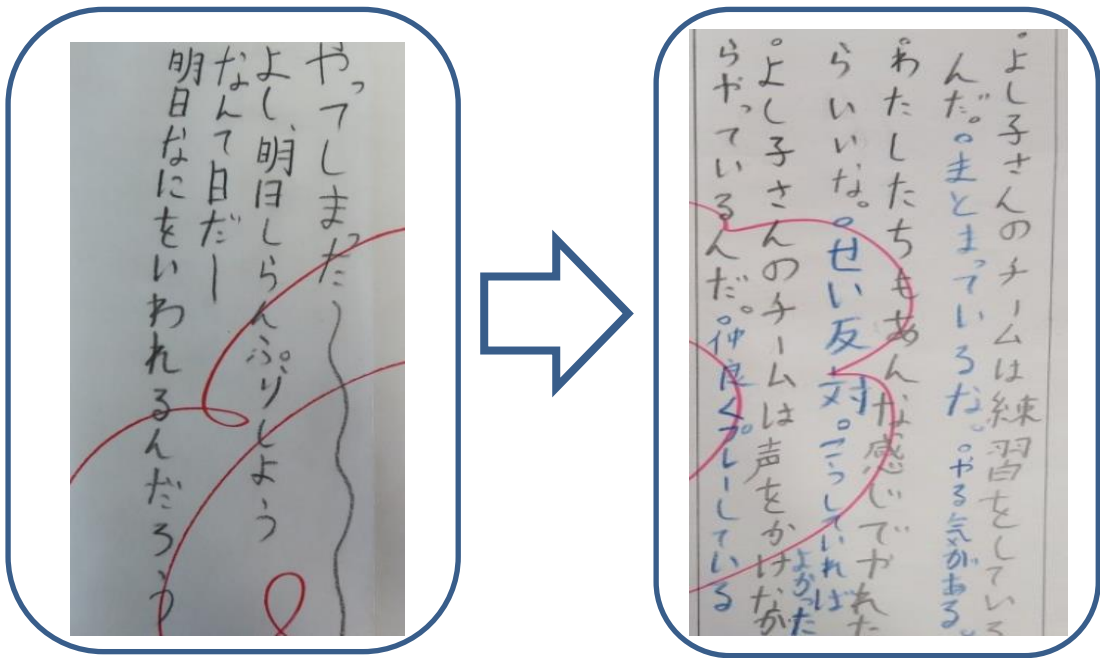 やってしまった〜
よし、明日しらんぷりしよう
なんて日だー
明日なにをいわれるんだろう
。よし子さんのチームは練習をしている
んだ。。まとまっているな。。やる気がある。
。わたしたちもあんな感じでやれた
らいいな。。せい反対。。こうしていれば
よかった
。よし子さんのチームは声をかけなが
らやっているんだ。。仲良くプレーしている